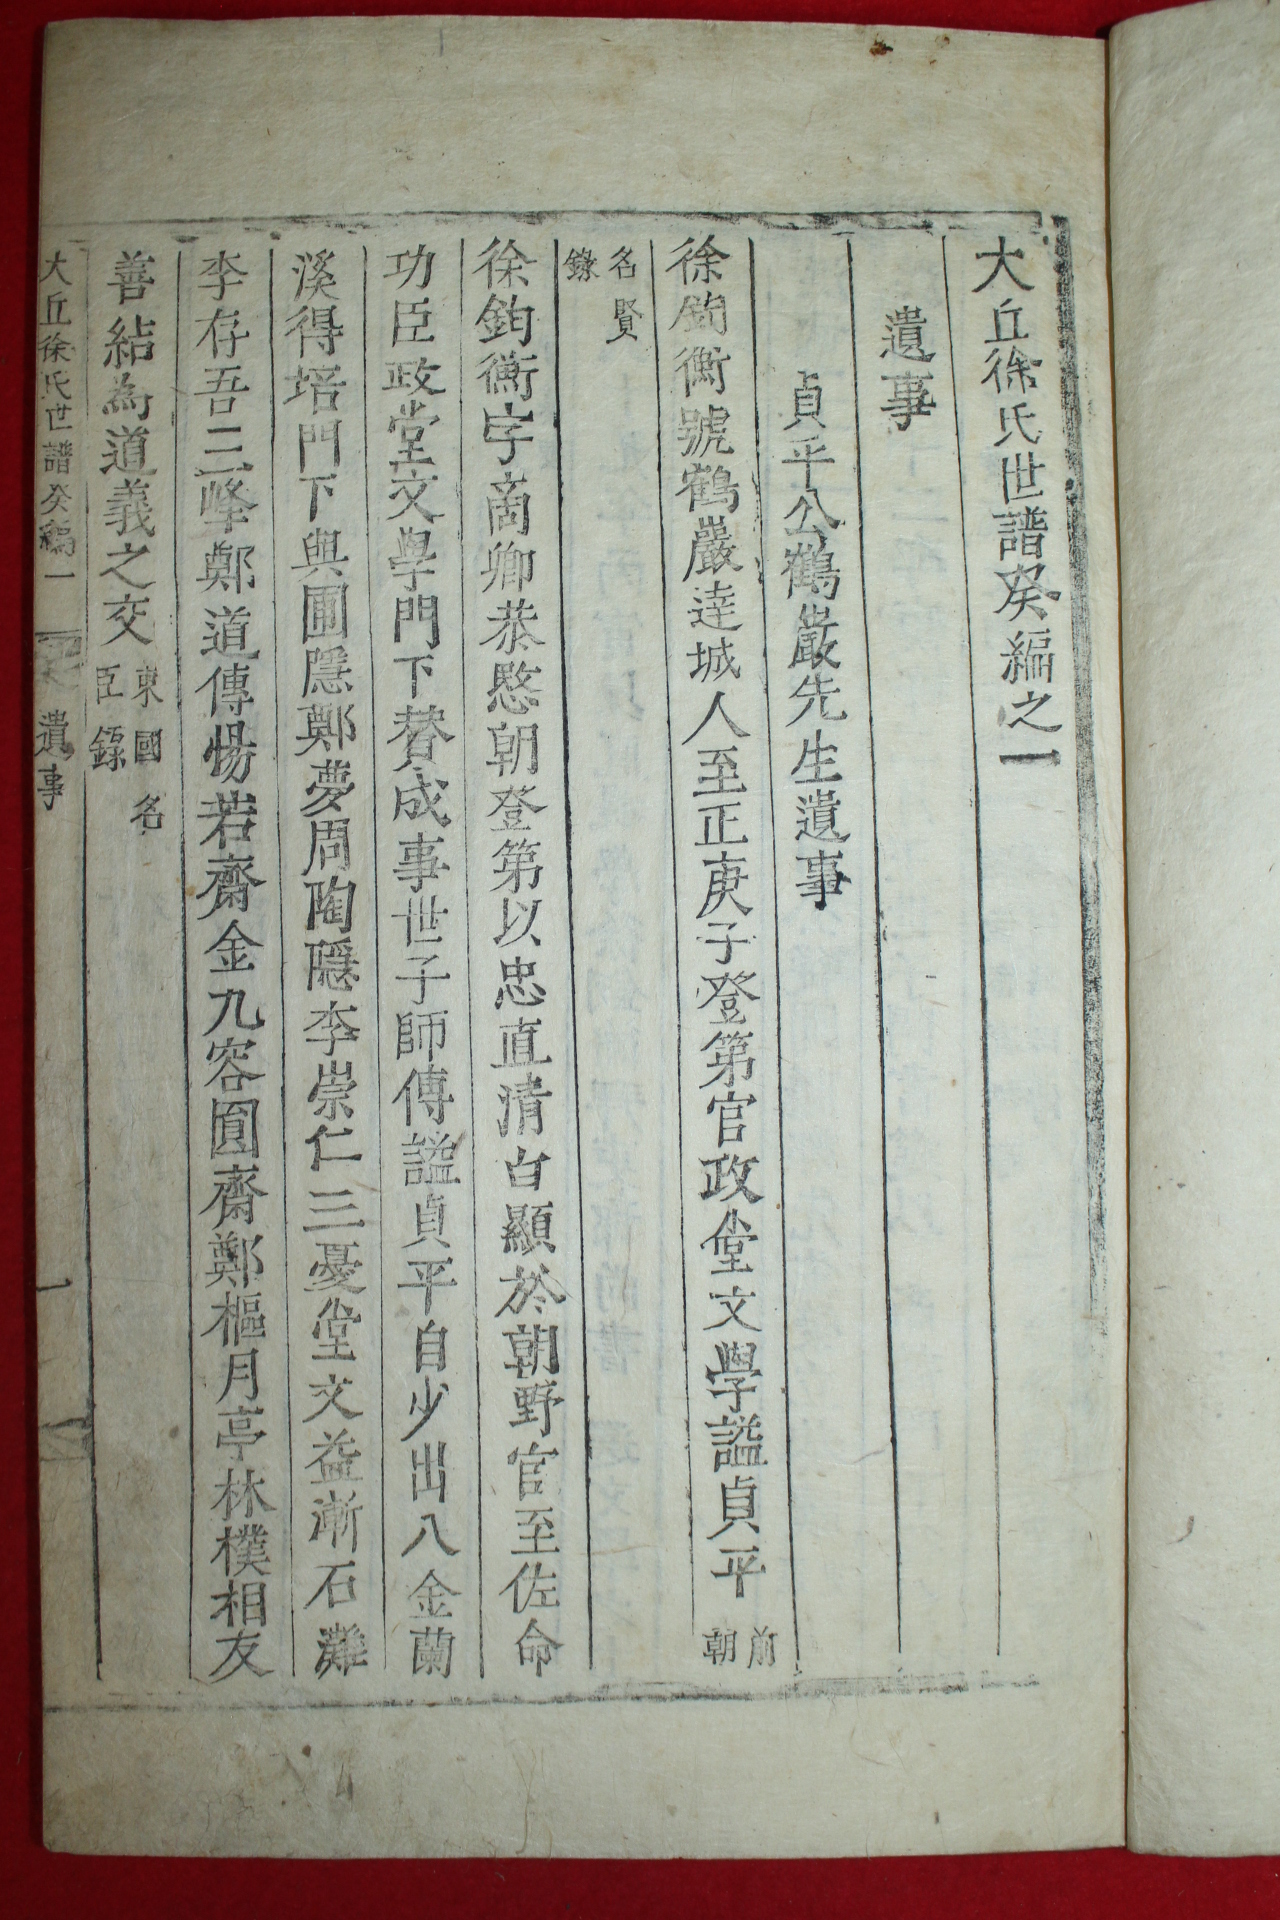 大丘徐氏世譜癸編之一
遺事
貞平公鶴巖先生遺事
徐鈞衡號鶴巖達城人至正庚子登第官政堂文學謚貞平前朝
名賢錄
徐鈞衡字商卿恭愍朝登第以忠直清白顯於朝野官至佐命
功臣政堂文學門下賛成事世子師傅謚貞平自少出入金蘭
溪得培門下與圃隱鄭夢周陶隱李崇仁三憂堂文益漸石灘
李存吾三峰鄭道傳惕若齋金九容圓齋鄭樞月亭林樸相友
善結為道義之交東國名臣錄
大丘徐氏世譜癸編一 遺事 一